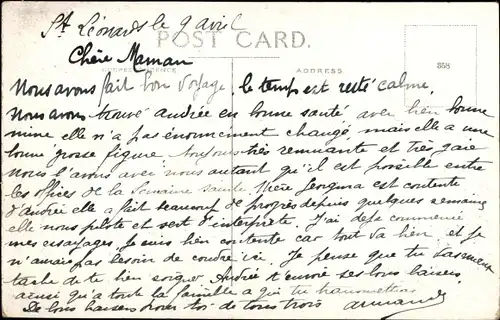 St Léonards le 9 avril
POST CARD.
Chère Maman
CORRESPONDENCE
ADDRESS
858
Nous avons fait bon voyage, le temps est resté calme,
Nous avons trouvé Andrée en bonne santé avec bien bonne
mine elle n'a pas énormement changé, mais elle a une
bonne grosse figure, toujours très remuante et très gaie
nous l'avons avec nous autant qu'il est possible entre
les offices de la Semaine sainte. Mère Georgina est contente
d'Andrée elle a fait beaucoup de progrès depuis quelques semaines
elle nous pilote et sert d'interprète. J'ai déjà commencé
mes essayages. Je suis bien contente car tout va bien et je
n'aurais pas besoin de coudre ici. Je pense que tu
tâche de te bien soigner Andrée t'envoie ses bons baisers
ainsi qu'à toute la famille a qui tu transmettras
De bons baisers pour toi de tous trois Armande